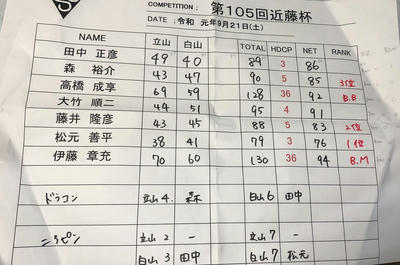 COMPETITION: 第105回近藤杯
DATE: 令和 元年9月21日(土)
NAME 立山 白山 TOTAL HDCP NET RANK
田中 正彦 49 40 89 3 86
森 裕介 43 47 90 5 85 3位
高橋 成享 69 59 128 36 92 B.B
大竹 順二 44 51 95 4 91
藤井 隆彦 43 45 88 5 83 2位
松元 善平 38 41 79 3 76 1位
伊藤 章充 70 60 130 36 94 B.M
ドラコン 立山4. 森 白山6 田中
ニアピン 立山2 − 立山7 −
白山3 田中 白山7 松元